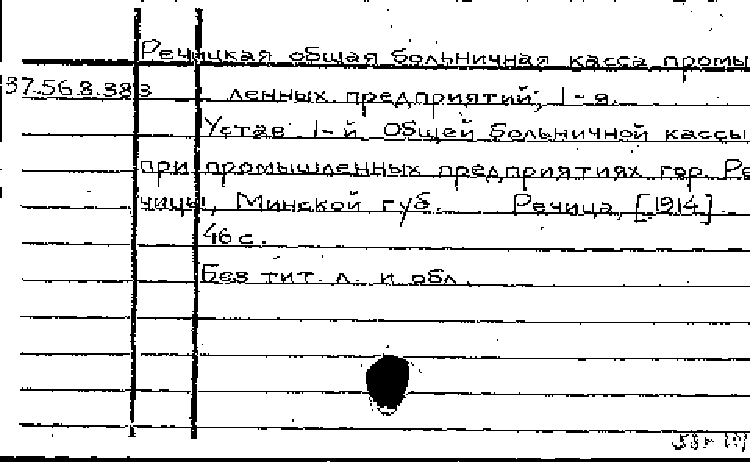 Речицкая общая больничная касса промы
37.56.8.383
ленных предприятий, 1-я.
Устав 1-й Общей больничной кассы
при промышленных предприятиях гор. Ре
чицы, Минской губ. Речица, [1914]
46 с.
Без тит. л. и обл.